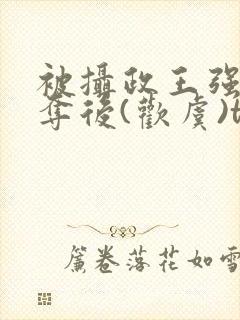 被攝政王强
奪後(歡虞)t
簾卷落花如雪